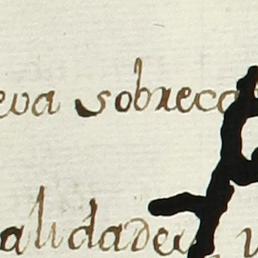 eva sobreca
alidades